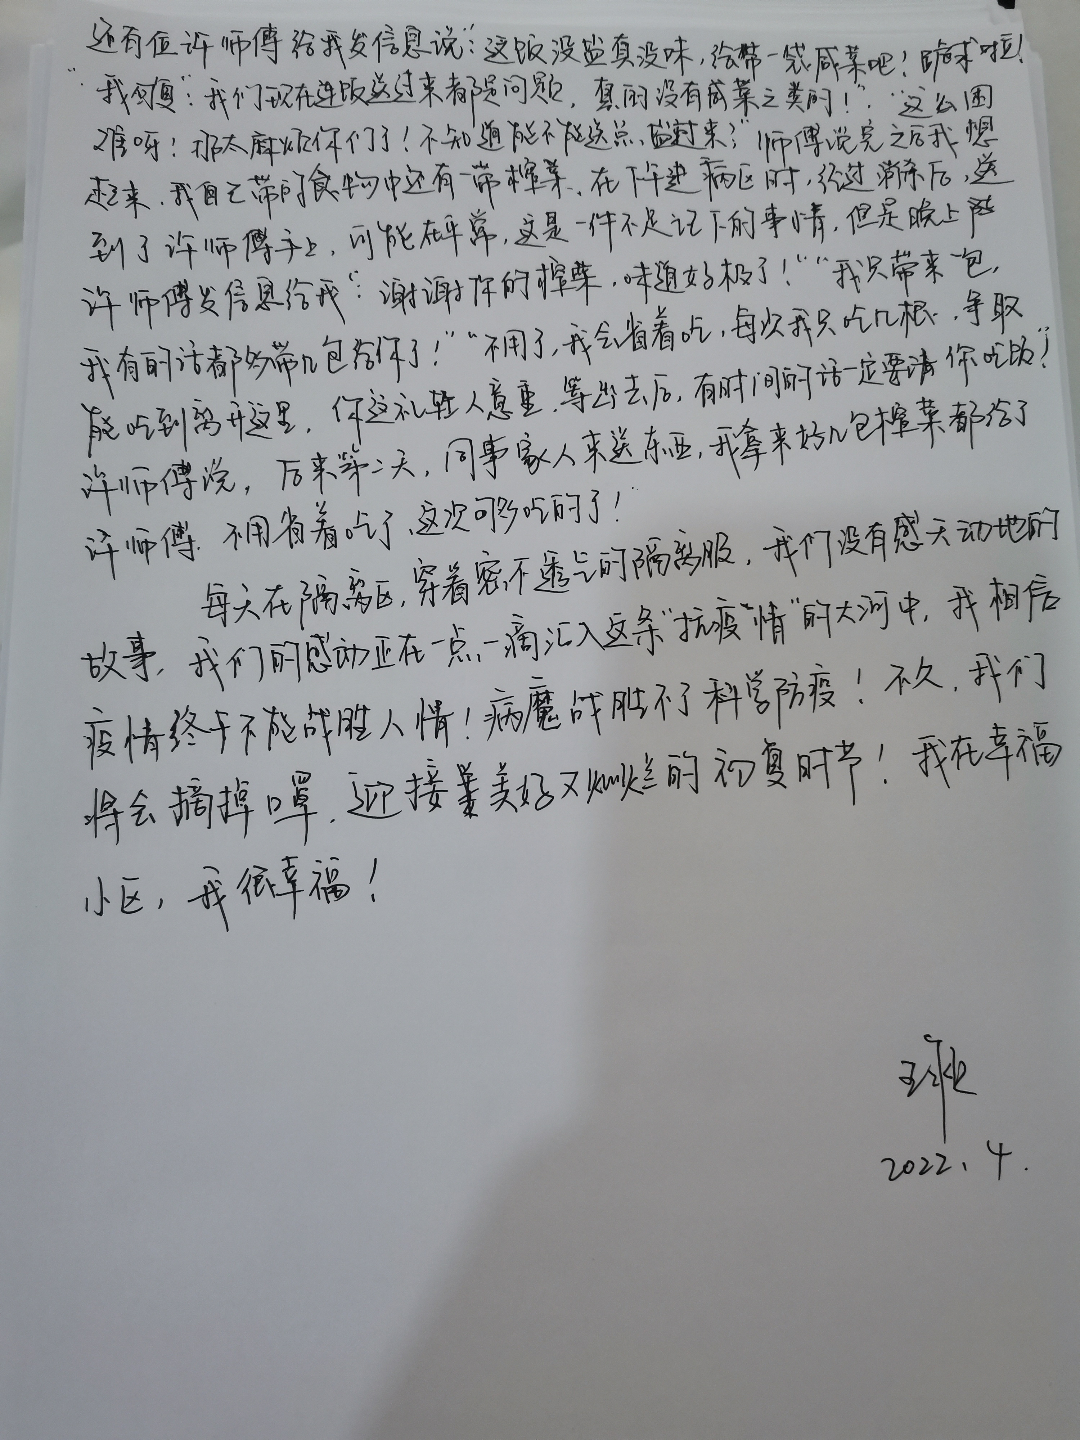 还有位许师傅给我发信息说:“这饭没盐真没味,给带一袋咸菜吧!跪求啦!
“我回复”:我们现在连饭送过来都是问题,真的没有咸菜之类的!”“这么困
难呀!那太麻烦你们了!不知道能不能送点盐过来?”师傅说完之后我想
起来,我自己带的食物中还有一带榨菜、在下午进病区时,经过消杀后,送
到了许师傅手上,可能在平常,这是一件不足记下的事情,但是晚上
许师傅发信息给我“:谢谢你的榨菜,味道好极了!”“我只带来一包,
我有的话都多带几包给你了!”“不用了,我会省着吃,每次我只吃几根,争取
能吃到离开这里,你这礼轻人意重,等出去后,有时间的话一定要请你吃饭!”
许师傅说,后来第二天,同事家人来送东西,我拿来好几包榨菜都给了
许师傅.不用省着吃了,这次可多吃的了!
每天在隔离区,穿着密不透气的隔离服,我们没有感天动地的
故事,我们的感动正在一点一滴汇入这条“抗疫”情”的大河中,我相信
疫情终于不能战胜人情!病魔战胜不了科学防疫!不久,我们
将会摘掉口罩.迎接美好又灿烂的初夏时节!我在幸福
小区,我很幸福!
2022.4.